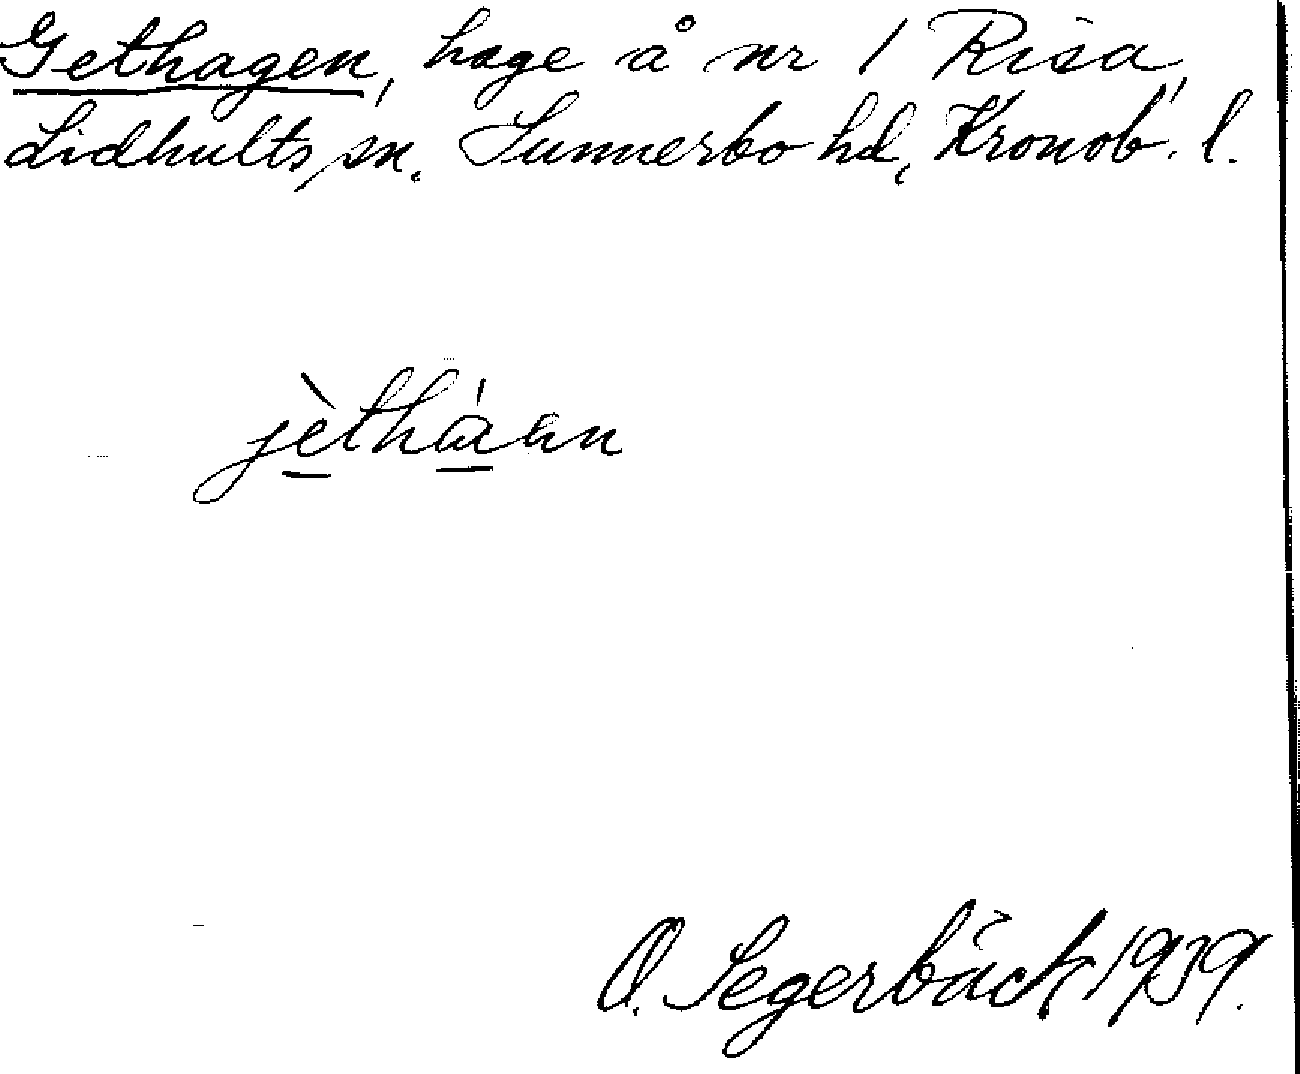 Gethagen, hage å nr 1 Risa,
Lidhults sn. Sunnerbo hd, Kronob. l.
jètháən
O. Segerbäck 1939.